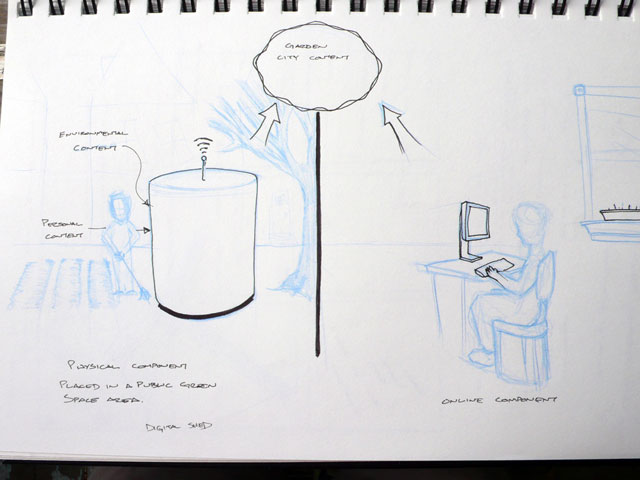 GARDEN
CITY CONTENT
ENVIRONMENTAL
CONTENT
PERSONAL
CONTENT
PHYSICAL COMPONENT
PLACED IN A PUBLIC GREEN
SPACE AREA.
DIGITAL SHED
ONLINE COMPONENT